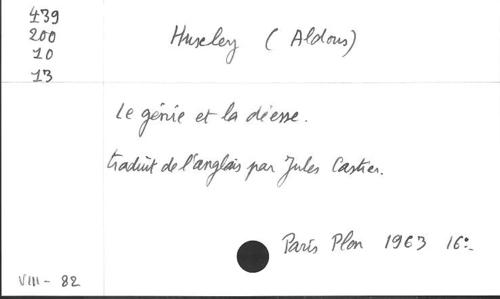 439
200
10
13
Huxley (Aldous)
Le génie et la déesse.
traduit de l'anglais par Jules Castier.
Paris Plon 1963 16º.
VIII - 82